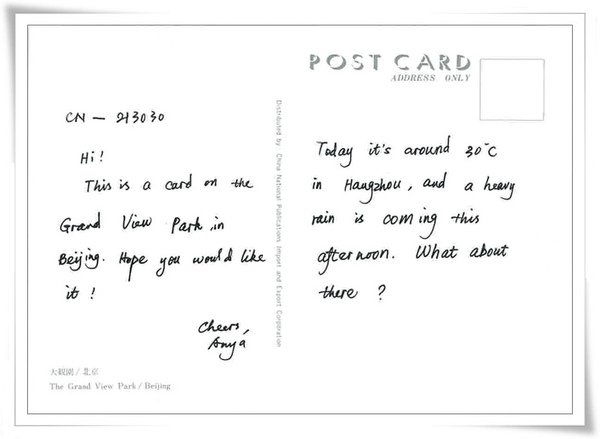 POST CARD
ADDRESS ONLY
CN - 213030
Hi!
This is a card on the
Grand View Park in
Beijing. Hope you would like
it!
Cheers,
Anya
Distributed by China National Publications Import and Export Corporation
Today it's around 30°C
in Hangzhou, and a heavy
rain is coming this
afternoon. What about
there?
大觀園 / 北京
The Grand View Park / Beijing